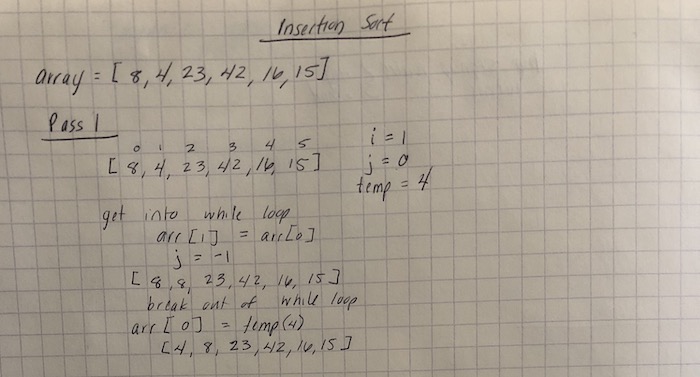 Insertion Sort
array = [ 8, 4, 23, 42, 16, 15]
Pass 1
0 1 2 3 4 5
[ 8, 4, 23, 42, 16, 15]
i = 1
j = 0
temp = 4
get into while loop
arr [1] = arr[0]
j = -1
[ 8, 8, 23, 42, 16, 15]
break out of while loop
arr [0] = temp(4)
[4, 8, 23, 42, 16, 15]